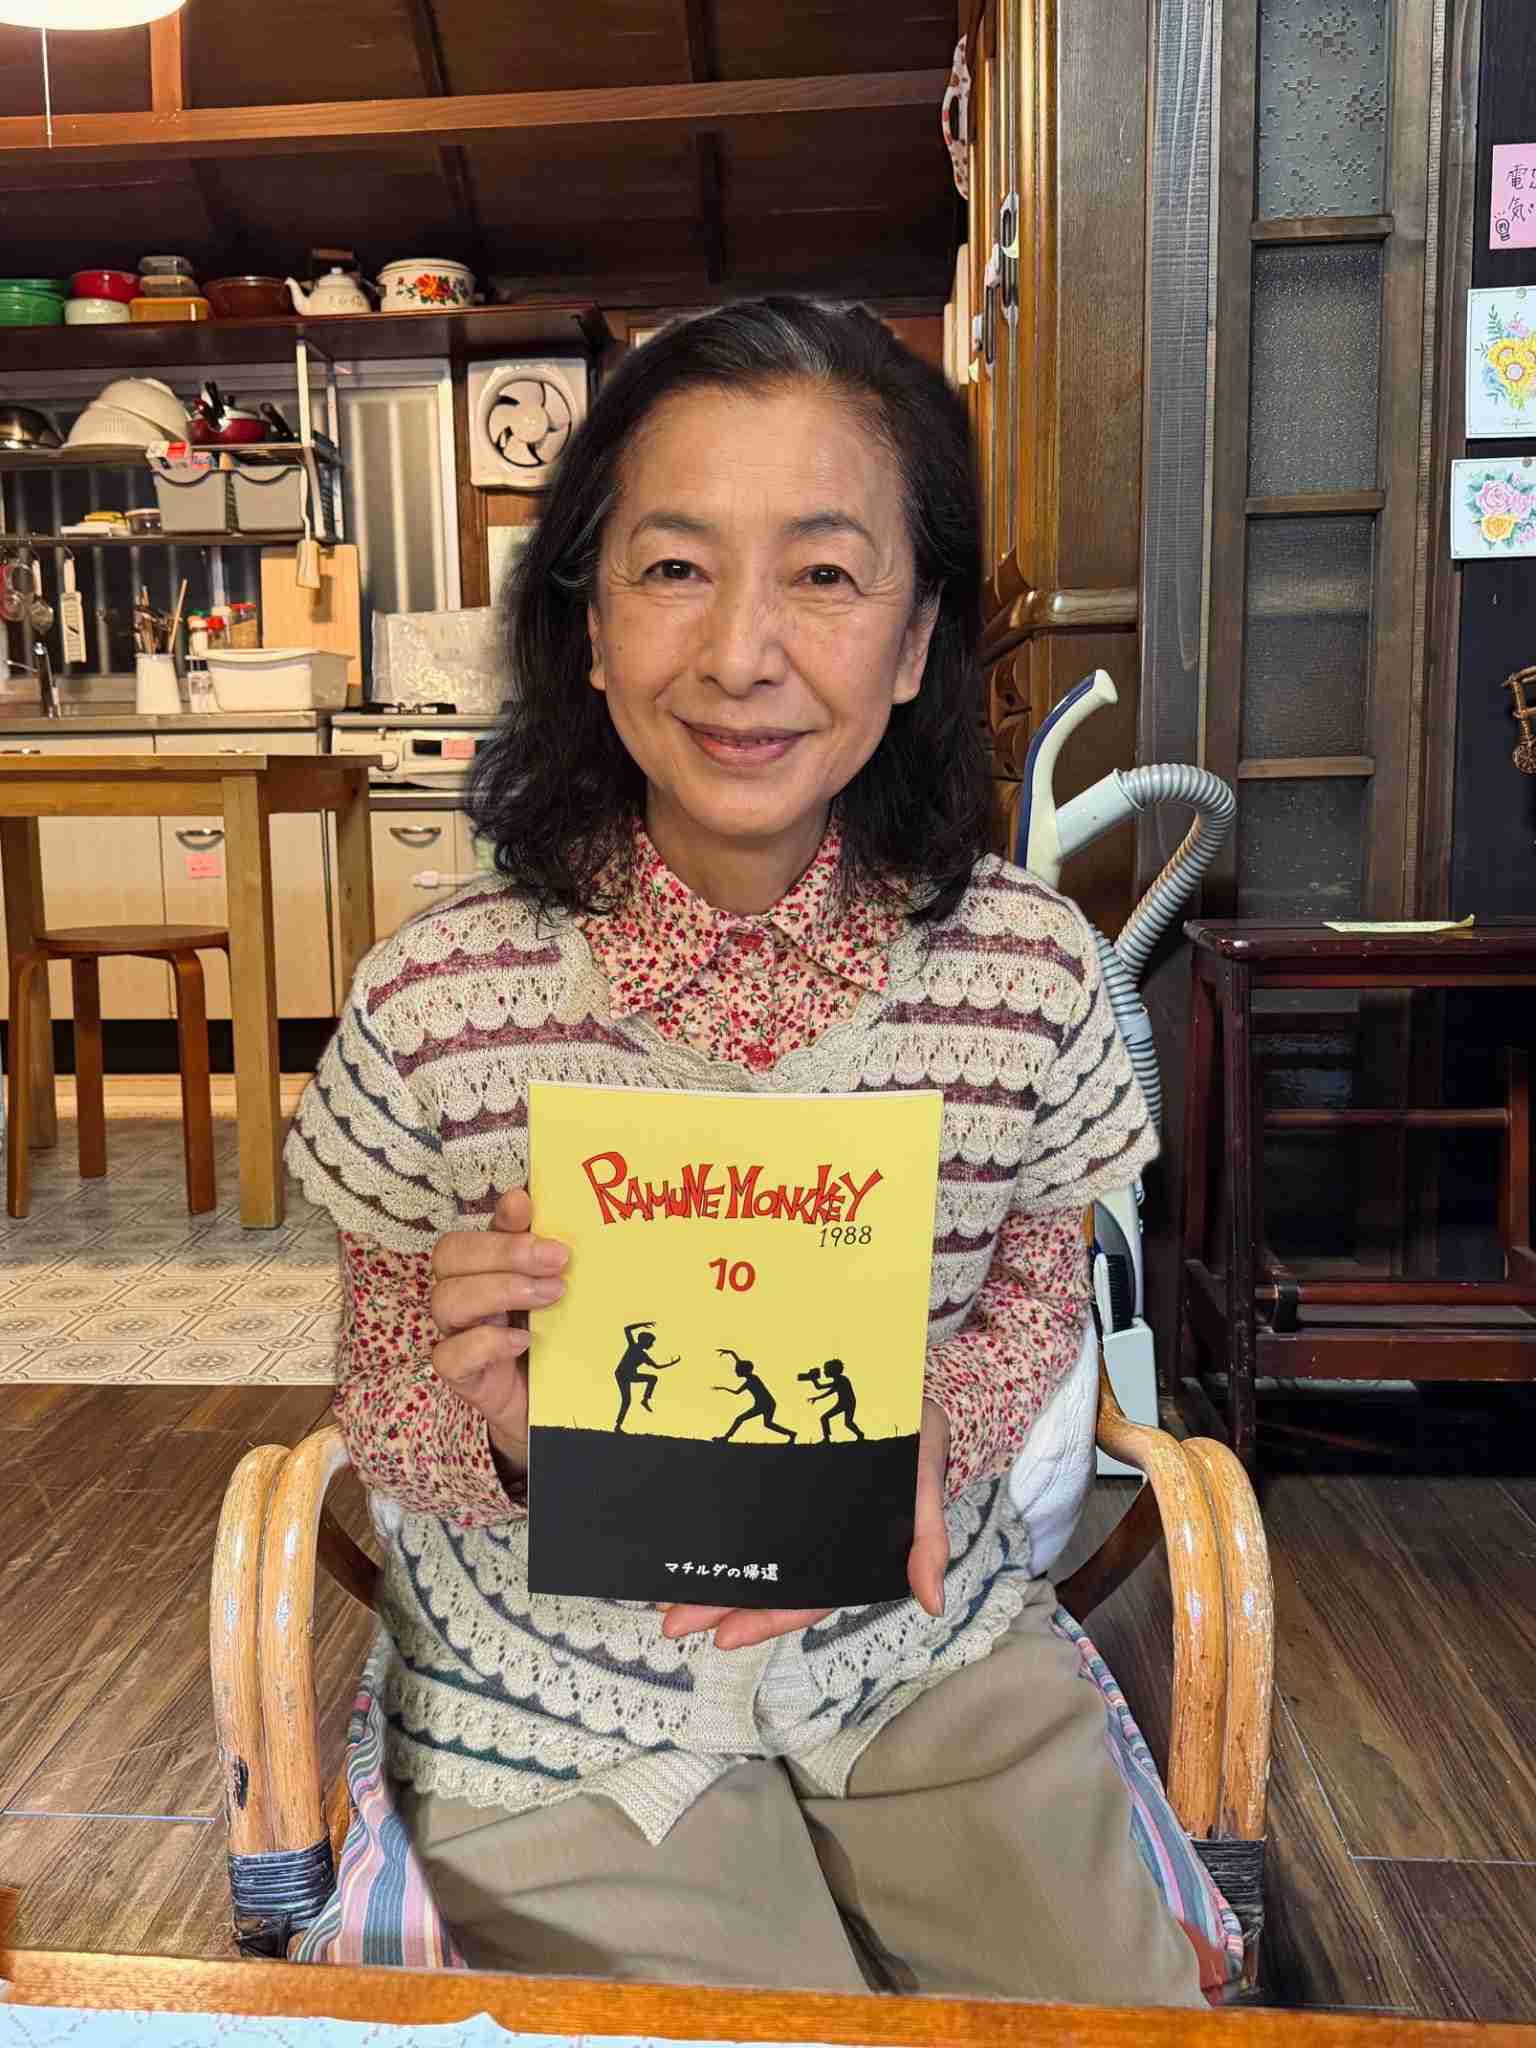 RAMUNE MONKEY
1988
10
マチルダの帰還
電
気